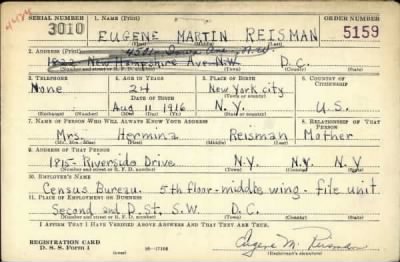 SERIAL NUMBER 1. NAME (Print) ORDER NUMBER
3010 EUGENE MARTIN REISMAN 5159
(First) (Middle) (Last)
2. ADDRESS (Print)
1822 New Hampshire Ave N.W. D.C.
(Number and street or R. F. D. number) (Town) (County) (State)
3. TELEPHONE 4. AGE IN YEARS 5. PLACE OF BIRTH 6. COUNTRY OF CITIZENSHIP
None 24 New York City
DATE OF BIRTH (Town or county)
Aug 11 1916 N.Y. U.S.
(Exchange) (Number) (Mo.) (Day) (Yr.) (State or country)
7. NAME OF PERSON WHO WILL ALWAYS KNOW YOUR ADDRESS 8. RELATIONSHIP OF THAT PERSON
Mrs. Hermina Reisman Mother
(Mr., Mrs., Miss) (First) (Middle) (Last)
9. ADDRESS OF THAT PERSON
1815 Riverside Drive N.Y. N.Y. N.Y
(Number and street or R. F. D. number) (Town) (County) (State)
10. EMPLOYER'S NAME
Census Bureau. 5th floor-middle wing - file unit
11. PLACE OF EMPLOYMENT OR BUSINESS
Second and D. St. S.W. D.C.
(Number and street or R. F. D. number) (Town) (County) (State)
I AFFIRM THAT I HAVE VERIFIED ABOVE ANSWERS AND THAT THEY ARE TRUE.
REGISTRATION CARD
D. S. S. Form 1 Eugene M. Reisman
(Registrant's signature)